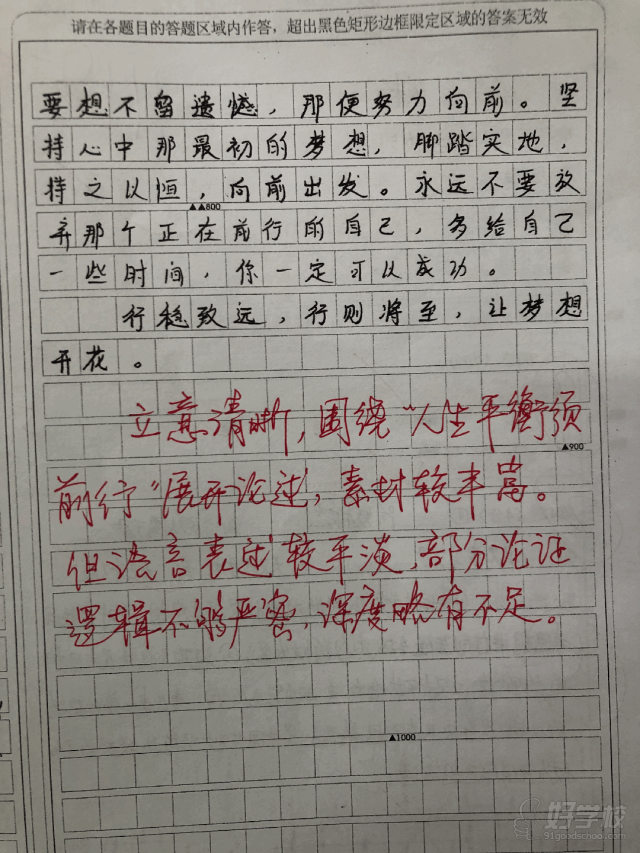 请在各题目的答题区域内作答，超出黑色矩形边框限定区域的答案无效
要想不留遗憾，那便努力向前。坚
持心中那最初的梦想，脚踏实地，
持之以恒，向前出发。永远不要放
▲▲800
弃那个正在前行的自己，多给自己
一些时间，你一定可以成功。
行稳致远，行则将至，让梦想
开花。
立意清晰，围绕“人生平衡须
▲900
前行”展开论述，素材较丰富。
但语言表述较平淡，部分论证
逻辑不够严密，深度略有不足。
▲1000
好学校
91goodschool.com